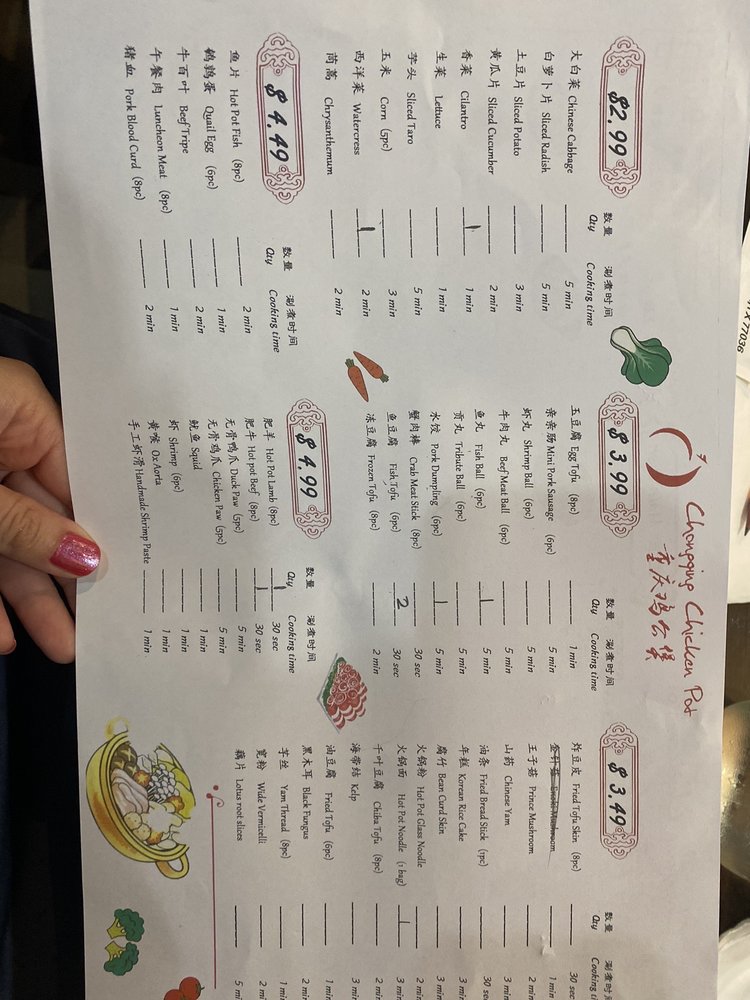 Chongqing Chicken Pot
重庆鸡公煲
$2.99
数量 涮煮时间
Qty Cooking time
大白菜 Chinese Cabbage 5 min
白萝卜片 Sliced Radish 5 min
土豆片 Sliced Potato 3 min
黄瓜片 Sliced Cucumber 2 min
香菜 Cilantro 1 1 min
生菜 Lettuce 1 min
芋头 Sliced Taro 5 min
玉米 Corn (5pc) 3 min
西洋菜 Watercress 1 2 min
茼蒿 Chrysanthemum 2 min
$4.49
数量 涮煮时间
Qty Cooking time
鱼片 Hot Pot Fish (8pc) 2 min
鹌鹑蛋 Quail Egg (6pc) 1 min
牛百叶 Beef Tripe 2 min
午餐肉 Luncheon Meat (8pc) 1 min
猪血 Pork Blood Curd (8pc) 2 min
$3.99
数量 涮煮时间
Qty Cooking time
玉豆腐 Egg Tofu (8pc) 1 min
亲亲肠 Mini Pork Sausage (6pc) 5 min
虾丸 Shrimp Ball (6pc) 5 min
牛肉丸 Beef Meat Ball (6pc) 5 min
鱼丸 Fish Ball (6pc) 1 5 min
贡丸 Tribute Ball (6pc) 5 min
水饺 Pork Dumpling (6pc) 1 5 min
蟹肉棒 Crab Meat Stick (8pc) 30 sec
鱼豆腐 Fish Tofu (6pc) 2 30 sec
冻豆腐 Frozen Tofu (8pc) 2 min
$4.99
数量 涮煮时间
Qty Cooking time
肥羊 Hot Pot Lamb (8pc) 1 30 sec
肥牛 Hot pot Beef (8pc) 1 30 sec
无骨鸭爪 Duck Paw (5pc) 5 min
无骨鸡爪 Chicken Paw (5pc) 5 min
鱿鱼 Squid 1 min
虾 Shrimp (6pc) 1 min
黄喉 Ox Aorta 1 min
手工虾滑 Handmade Shrimp Paste 1 min
$3.49
数量 涮煮时间
Qty Cooking ti
炸豆皮 Fried Tofu Skin (8pc) 30 sec
金针菇 Enoki Mushroom 1 min
王子菇 Prince Mushroom 2 min
山药 Chinese Yam 3 min
油条 Fried Bread Stick (1pc) 30 sec
年糕 Korean Rice Cake 3 min
腐竹 Bean Curd Skin 3 min
火锅粉 Hot Pot Glass Noodle 2 min
火锅面 Hot Pot Noodle (1 bag) 1 3 min
千叶豆腐 Chiba Tofu (8pc) 2 min
海带结 Kelp 3 min
油豆腐 Fried Tofu (6pc) 1 min
黑木耳 Black Fungus 2 min
芋丝 Yam Thread (8pc) 1 min
宽粉 Wide Vermicelli 2 min
藕片 Lotus root slices 5 mi
TX 77038